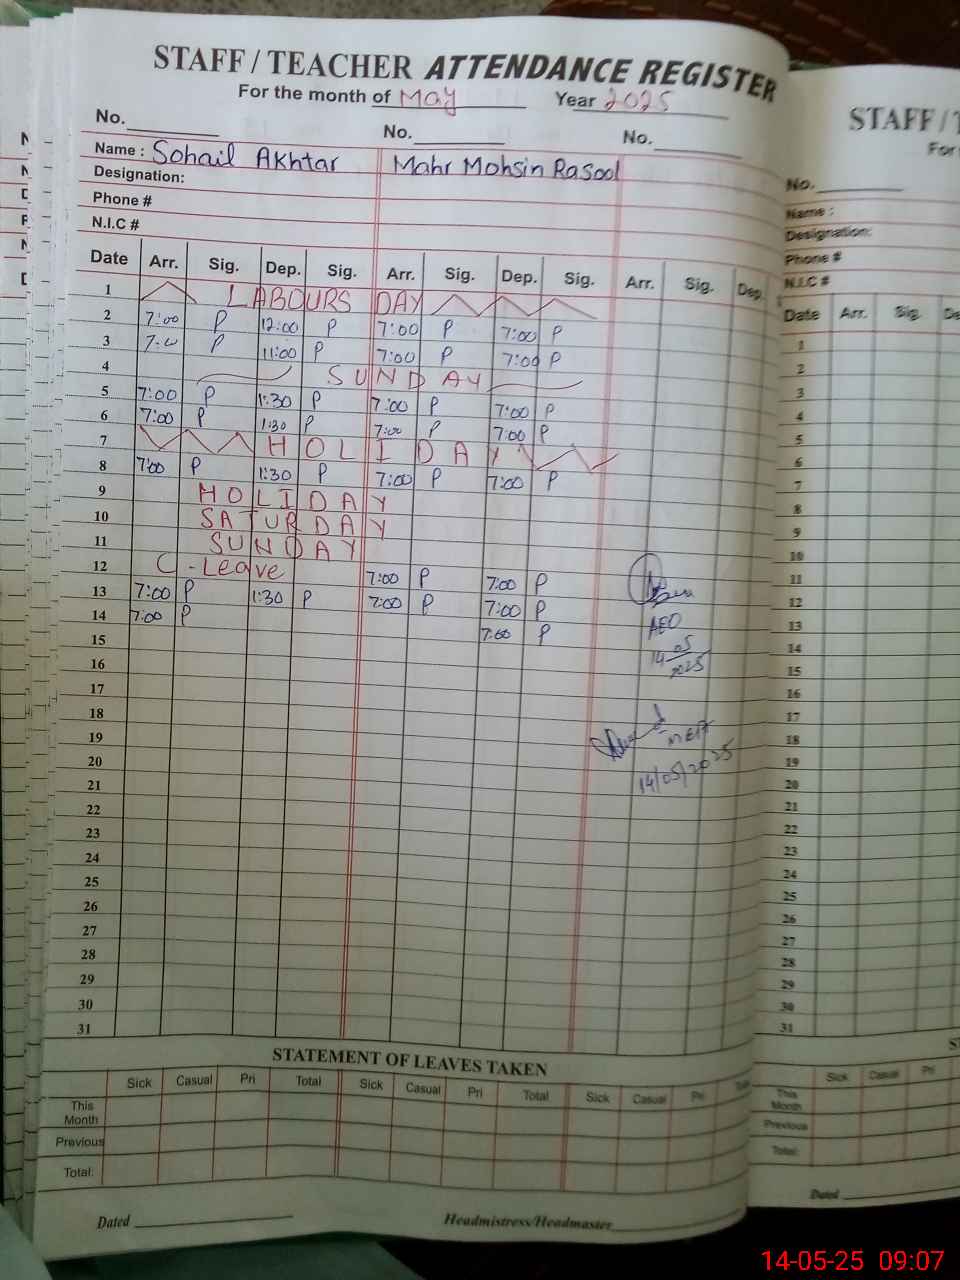 STAFF / TEACHER ATTENDANCE REGISTER
For the month of May Year 2025
No. No. No.
Name : Sohail Akhtar Mahr Mohsin Rasool
Designation:
Phone #
N.I.C #
Date Arr. Sig. Dep. Sig. Arr. Sig. Dep. Sig. Arr. Sig. Dep.
1 LABOURS DAY
2 7:00 P 12:00 P 7:00 P 7:00 P
3 P 11:00 P 7:00 P 7:00 P
4 SUNDAY
5 7:00 P 1:30 P 7:00 P 7:00 P
6 7:00 P 1:30 P 7:00 P 7:00 P
7 HOLIDAY
8 7:00 P 1:30 P 7:00 P 7:00 P
9 HOLIDAY
10 SATURDAY
11 SUNDAY
12 C-Leave 7:00 P 7:00 P
13 7:00 P 1:30 P 7:00 P 7:00 P
14 7:00 P 7:00 P
15
16
17
18
19
20
21
22
23
24
25
26
27
28
29
30
31
AEO
14/05/2025
14/05/2025
STATEMENT OF LEAVES TAKEN
Sick Casual Pri Total Sick Casual Pri Total Sick Casual Pri
This Month
Previous
Total:
Dated Headmistress/Headmaster
STAFF / T
For
No.
Name :
Designation:
Phone #
N.I.C #
Date Arr. Sig. De
1
2
3
4
5
6
7
8
9
10
11
12
13
14
15
16
17
18
19
20
21
22
23
24
25
26
27
28
29
30
31
Sick Casual Pri
This Month
Previous
Total:
Dated
14-05-25 09:07